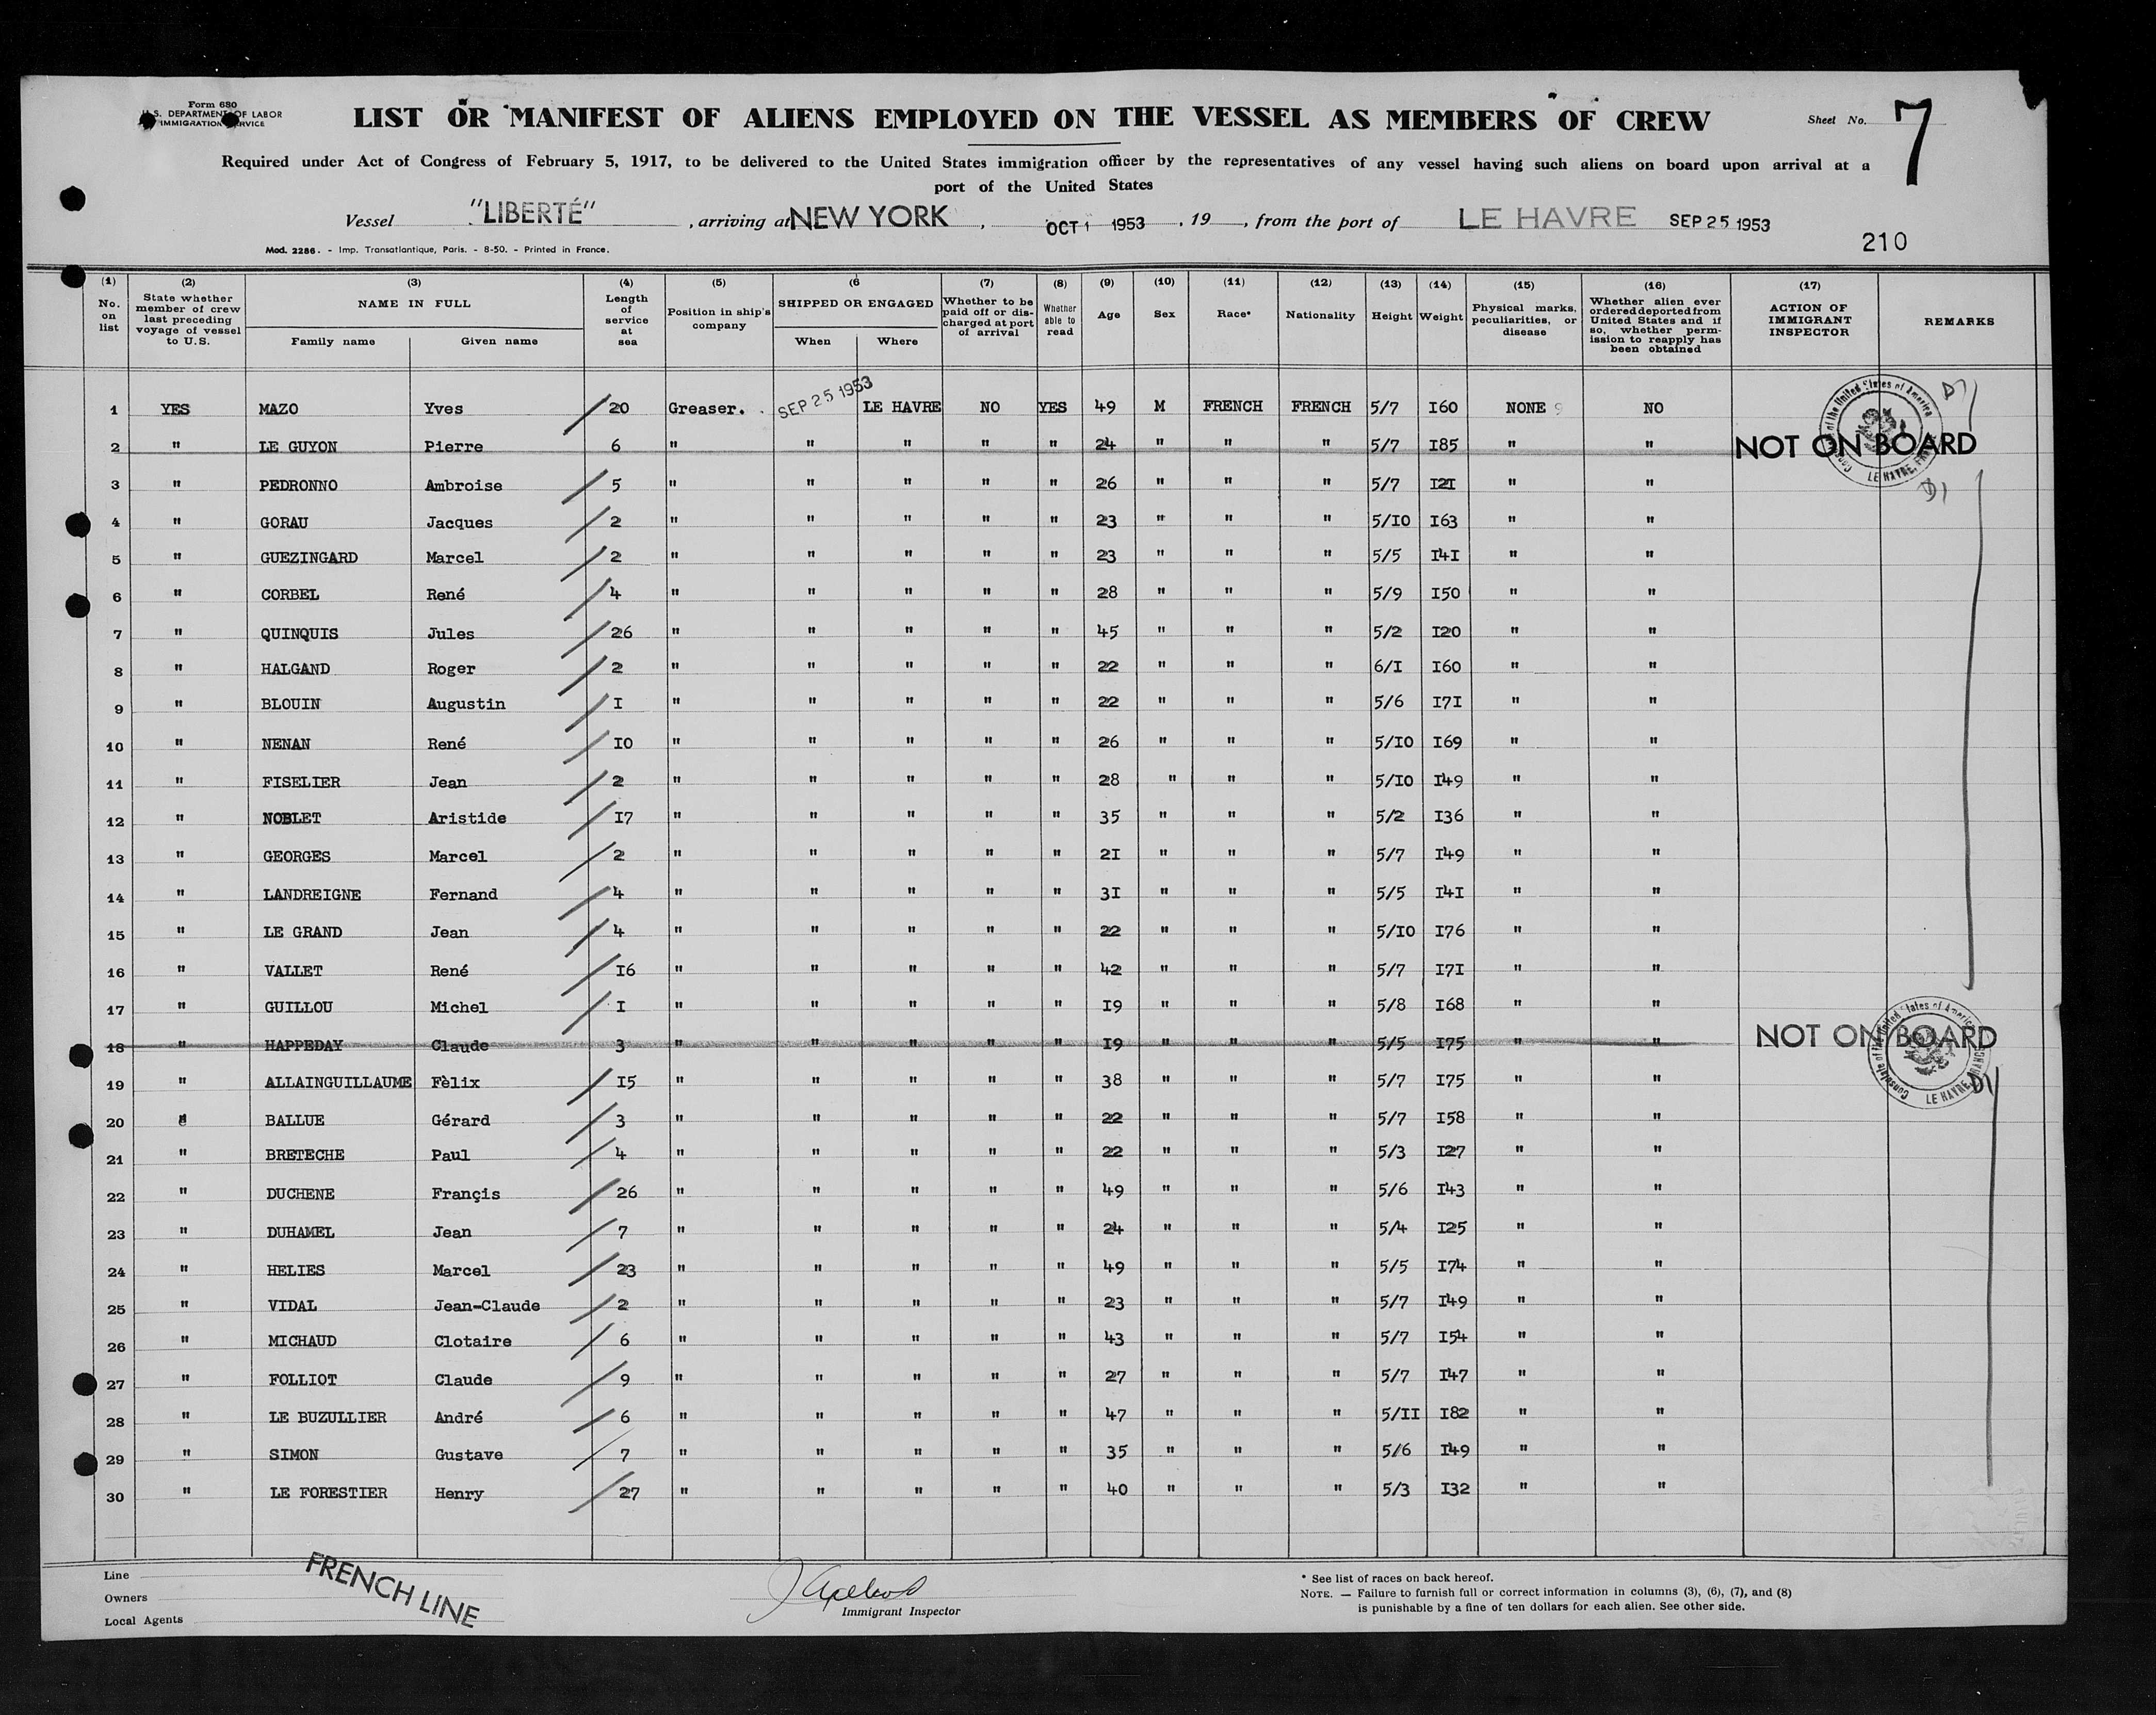 Form 680
U.S. DEPARTMENT OF LABOR
IMMIGRATION SERVICE
LIST OR MANIFEST OF ALIENS EMPLOYED ON THE VESSEL AS MEMBERS OF CREW
Sheet No. 7
Required under Act of Congress of February 5, 1917, to be delivered to the United States immigration officer by the representatives of any vessel having such aliens on board upon arrival at a
port of the United States
Vessel "LIBERTÉ", arriving at NEW YORK, OCT 1 1953, 19, from the port of LE HAVRE SEP 25 1953
210
Mod. 2286. - Imp. Transatlantique, Paris. - 8-50. - Printed in France.
(1) No. on list (2) State whether member of crew last preceding voyage of vessel to U.S. (3) NAME IN FULL Family name Given name (4) Length of service at sea (5) Position in ship's company (6 SHIPPED OR ENGAGED When Where (7) Whether to be paid off or discharged at port of arrival (8) Whether able to read (9) Age (10) Sex (11) Race* (12) Nationality (13) Height (14) Weight (15) Physical marks, peculiarities, or disease (16) Whether alien ever ordered deported from United States and if so, whether permission to reapply has been obtained (17) ACTION OF IMMIGRANT INSPECTOR REMARKS
1 YES MAZO Yves 20 Greaser. SEP 25 1953 LE HAVRE NO YES 49 M FRENCH FRENCH 5/7 I60 NONE 9 NO
2 " LE GUYON Pierre 6 " " " " " 24 " " " 5/7 I85 " " NOT ON BOARD
3 " PEDRONNO Ambroise 5 " " " " " 26 " " " 5/7 I2I " "
4 " GORAU Jacques 2 " " " " " 23 " " " 5/I0 I63 " "
5 " GUEZINGARD Marcel 2 " " " " " 23 " " " 5/5 I4I " "
6 " CORBEL René 4 " " " " " 28 " " " 5/9 I50 " "
7 " QUINQUIS Jules 26 " " " " " 45 " " " 5/2 I20 " "
8 " HALGAND Roger 2 " " " " " 22 " " " 6/I I60 " "
9 " BLOUIN Augustin I " " " " " 22 " " " 5/6 I7I " "
10 " NENAN René I0 " " " " " 26 " " " 5/I0 I69 " "
11 " FISELIER Jean 2 " " " " " 28 " " " 5/I0 I49 " "
12 " NOBLET Aristide I7 " " " " " 35 " " " 5/2 I36 " "
13 " GEORGES Marcel 2 " " " " " 2I " " " 5/7 I49 " "
14 " LANDREIGNE Fernand 4 " " " " " 3I " " " 5/5 I4I " "
15 " LE GRAND Jean 4 " " " " " 22 " " " 5/I0 I76 " "
16 " VALLET René I6 " " " " " 42 " " " 5/7 I7I " "
17 " GUILLOU Michel I " " " " " I9 " " " 5/8 I68 " "
18 " HAPPEDAY Claude 3 " " " " " I9 " " " 5/5 I75 " " NOT ON BOARD
19 " ALLAINGUILLAUME Fèlix I5 " " " " " 38 " " " 5/7 I75 " "
20 " BALLUE Gérard 3 " " " " " 22 " " " 5/7 I58 " "
21 " BRETECHE Paul 4 " " " " " 22 " " " 5/3 I27 " "
22 " DUCHENE Françis 26 " " " " " 49 " " " 5/6 I43 " "
23 " DUHAMEL Jean 7 " " " " " 24 " " " 5/4 I25 " "
24 " HELIES Marcel 23 " " " " " 49 " " " 5/5 I74 " "
25 " VIDAL Jean-Claude 2 " " " " " 23 " " " 5/7 I49 " "
26 " MICHAUD Clotaire 6 " " " " " 43 " " " 5/7 I54 " "
27 " FOLLIOT Claude 9 " " " " " 27 " " " 5/7 I47 " "
28 " LE BUZULLIER André 6 " " " " " 47 " " " 5/II I82 " "
29 " SIMON Gustave 7 " " " " " 35 " " " 5/6 I49 " "
30 " LE FORESTIER Henry 27 " " " " " 40 " " " 5/3 I32 " "
Line
Owners
Local Agents
FRENCH LINE
Immigrant Inspector
* See list of races on back hereof.
NOTE. — Failure to furnish full or correct information in columns (3), (6), (7), and (8)
is punishable by a fine of ten dollars for each alien. See other side.